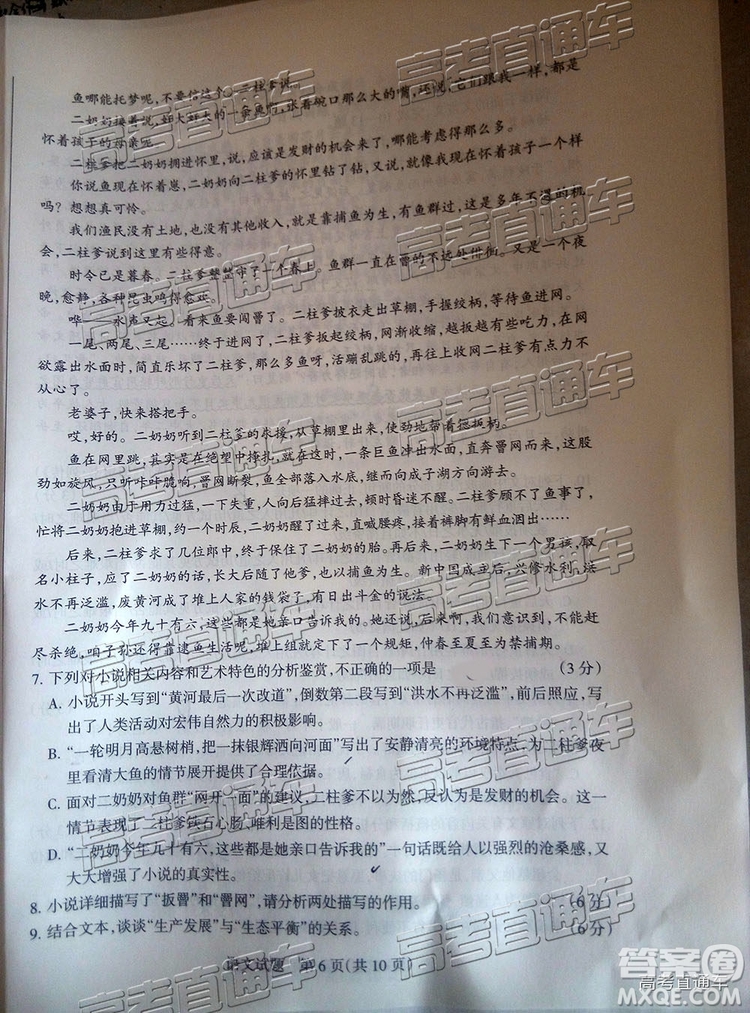 鱼哪能托梦呢，不要信这个。二柱爹说。
二奶奶接着说，好大好大的一条鱼啊，张着碗口那么大的嘴，还说，它们跟我一样，都是
怀着孩子的母亲呢
二柱爹把二奶奶拥进怀里，说，应该是发财的机会来了，哪能考虑得那么多。
你说鱼现在怀着崽，二奶奶向二柱爹的怀里钻了钻，又说，就像我现在怀着孩子一个样
吗？想想真可怜。
我们渔民没有土地，也没有其他收入，就是靠捕鱼为生，有鱼群过，这是多年不遇的机
会，二柱爹说到这里有些得意。
时令已是暮春。二柱爹整整守了一个春上。鱼群一直在罾的不远处徘徊。又是一个夜
晚，愈静，各种昆虫鸣得愈欢。
哗——水声又起。看来鱼要闯罾了。二柱爹披衣走出草棚，手握绞柄，等待鱼进网。
一尾、两尾、三尾……终于进网了，二柱爹扳起绞柄，网渐收缩，越扳越有些吃力，在网
欲露出水面时，简直乐坏了二柱爹，那么多鱼呀，活蹦乱跳的，再往上收网二柱爹有点力不
从心了。
老婆子，快来搭把手。
哎，好的。二奶奶听到二柱爹的求援，从草棚里出来，使劲地帮着扳柄。
鱼在网里跳，其实是在绝望中挣扎，就在这时，一条巨鱼冲出水面，直奔罾网而来，速
劲如旋风，只听咔咔脆响，罾网断裂，鱼全部落入水底，继而向成子湖方向游去。
二奶奶由于用力过猛，一下失重，人向后猛摔过去，顿时昏迷不醒。二柱爹顾不了鱼事了，
忙将二奶奶抱进草棚，约一个时辰，二奶奶醒了过来，直喊腰疼，接着裤脚有鲜血洇出……
后来，二柱爹求了几位郎中，终于保住了二奶奶的胎。再后来，二奶奶生下一个男孩，取
名小柱子，应了二奶奶的话，长大后随了他爹，也以捕鱼为生。新中国成立后，兴修水利，洪
水不再泛滥，废黄河成了堆上人家的钱袋了，有日出斗金的说法。
二奶奶今年九十有六，这些都是她亲口告诉我的。她还说，后来啊，我们意识到，不能
赶尽杀绝，咱子孙还得靠逮鱼生活呢，堆上组就制定下了一个规矩，仲春至夏至为禁捕期。
7. 下列对小说相关内容和艺术特色的分析鉴赏，不正确的一项是 (3分)
A. 小说开头写到“黄河最后一次改道”，倒数第二段写到“洪水不再泛滥”，前后照应，写
出了人类活动对宏伟自然力的积极影响。
B. “一轮明月高悬树梢，把一抹银辉洒向河面”写出了安静清亮的环境特点，为二柱爹夜
里看清大鱼的情节展开提供了合理依据。
C. 面对二奶奶对鱼群“网开一面”的建议，二柱爹不以为然，反认为是发财的机会。这一
情节表现了二柱爹铁石心肠、唯利是图的性格。
D. “二奶奶今年九十有六，这些都是她亲口告诉我的”一句话既给人以强烈的沧桑感，又
大大增强了小说的真实性。
8. 小说详细描写了“扳罾”和“罾网”，请分析两处描写的作用。 (6分)
9. 结合文本，谈谈“生产发展”与“生态平衡”的关系。 (6分)
语文试题 第6页(共10页)
高考直通车
答案圈
高考直通车
MXQE.COM